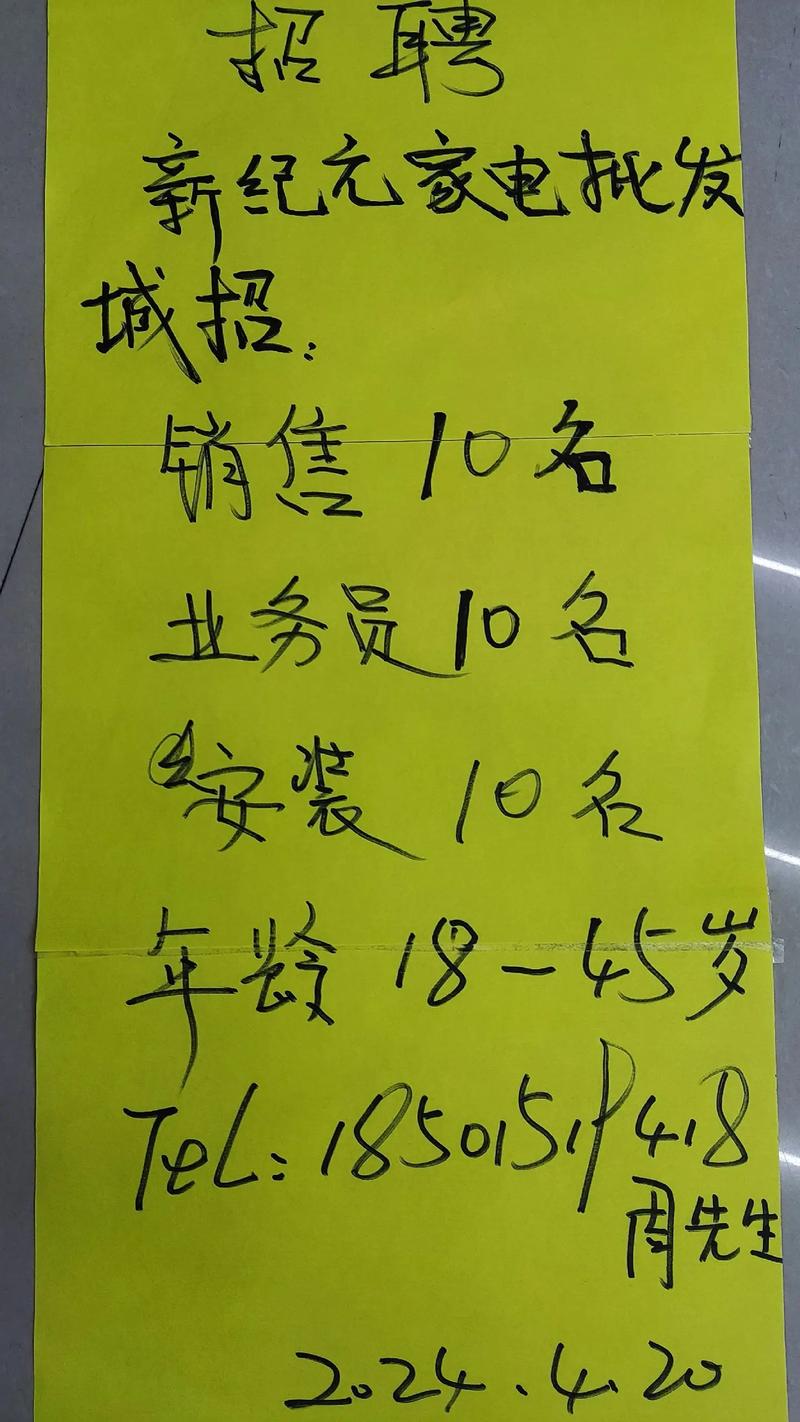 招聘
新纪元家电批发
城招：
销售 10名
业务员 10名
安装 10名
年龄 18-45岁
Tel: 18501519418
周先生
2024.4.20